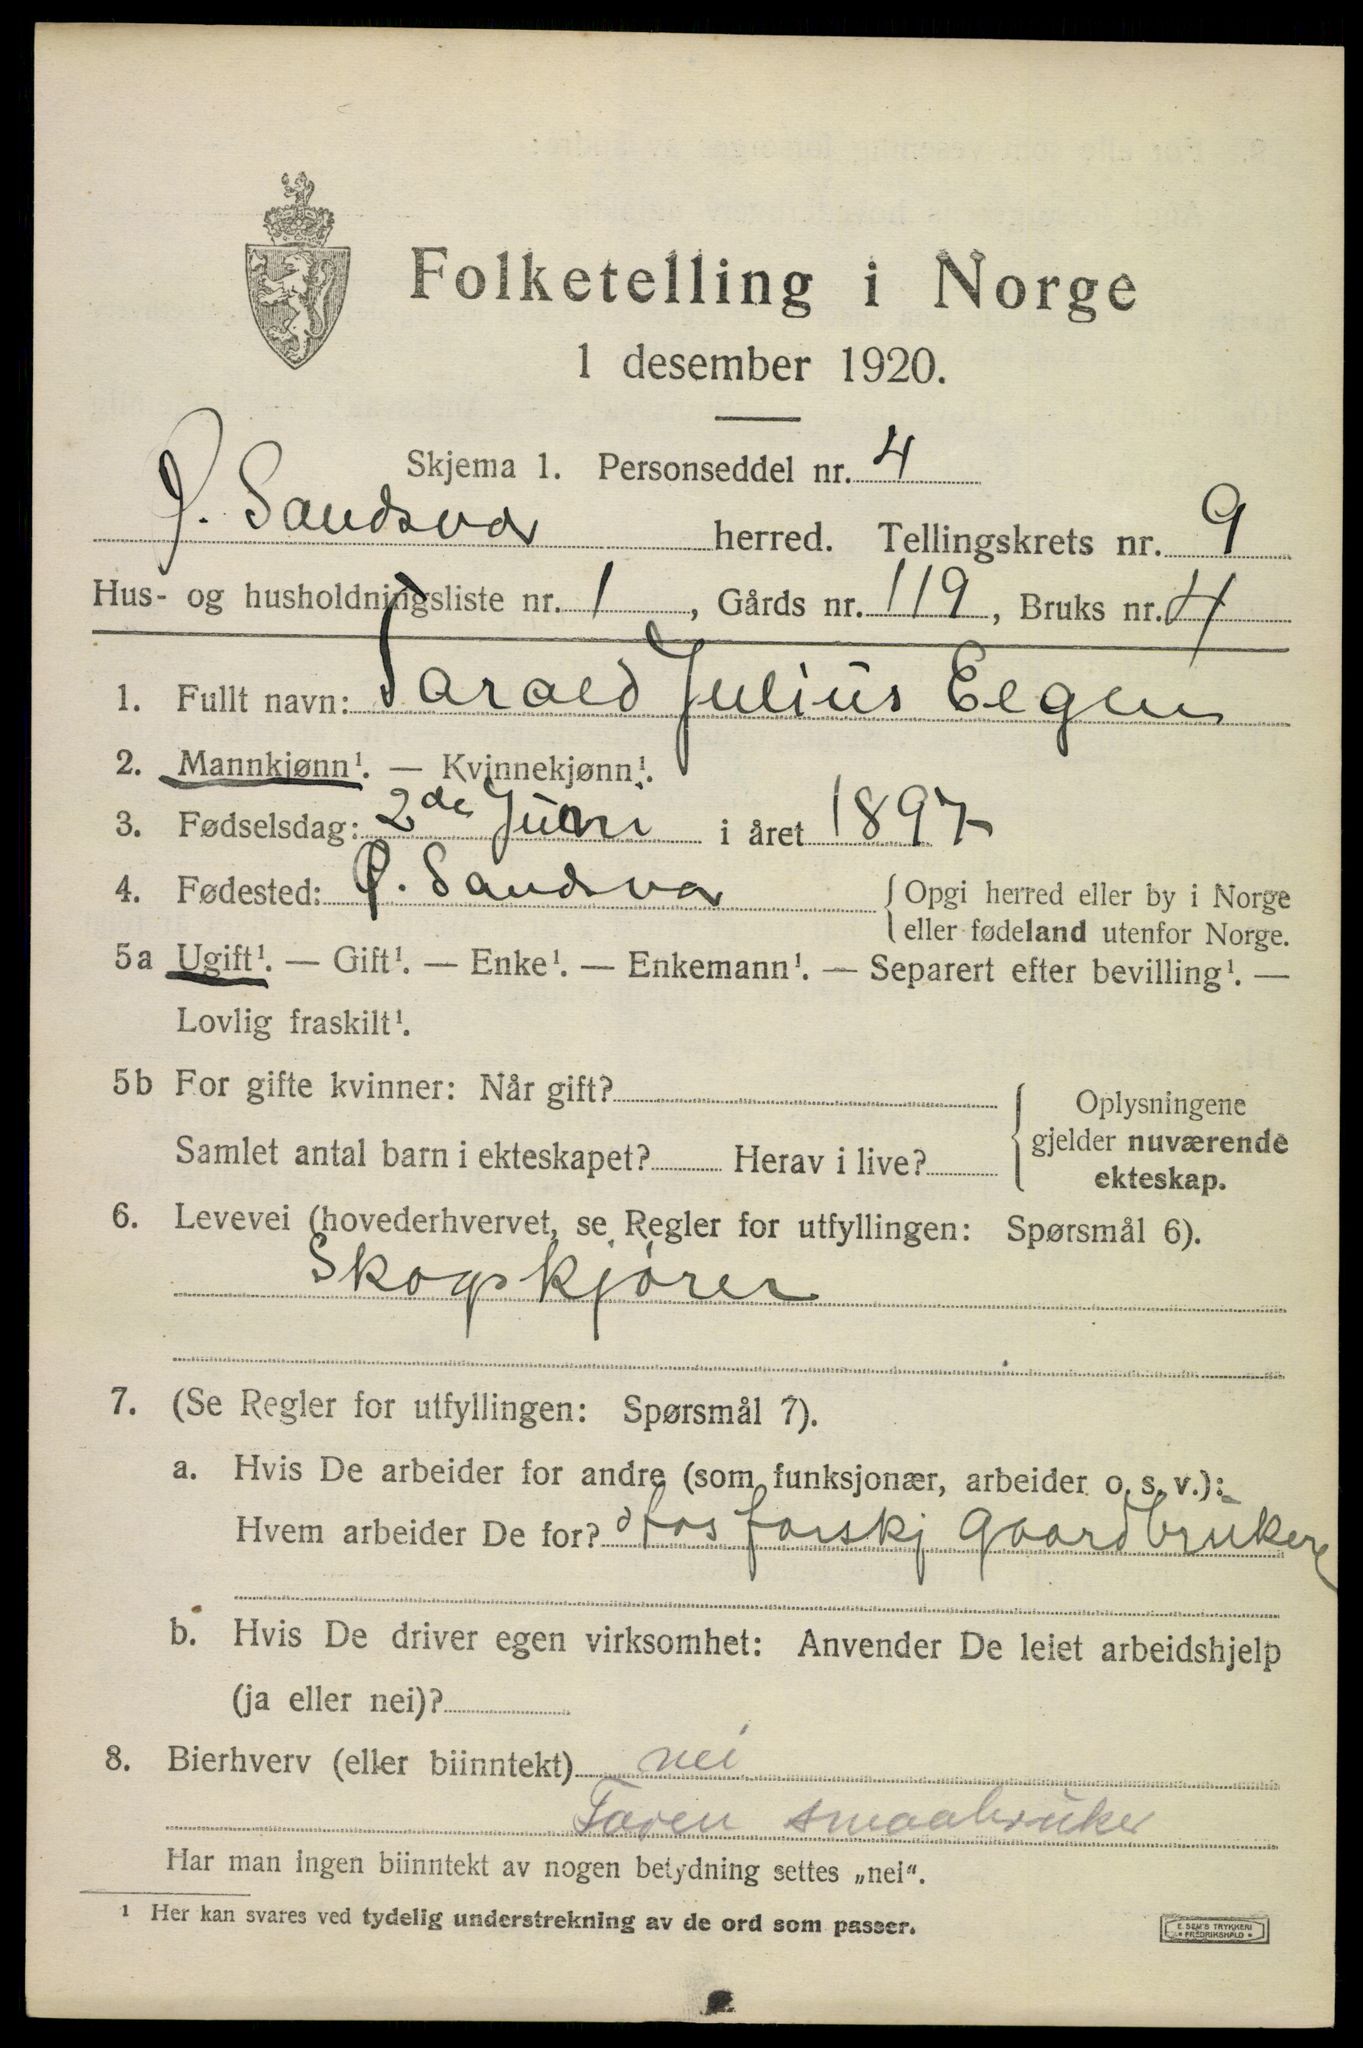 Folketelling i Norge
1 desember 1920.
Skjema 1. Personseddel nr. 4
Ø. Sandsvær herred. Tellingskrets nr. 9
Hus- og husholdningsliste nr. 1, Gårds nr. 119, Bruks nr. 4
1. Fullt navn: Tarald Julius Elgen
2. Mannkjønn¹. — Kvinnekjønn¹.
3. Fødselsdag: 2de Juni i året 1897
4. Fødested: Ø. Sandsvær {Opgi herred eller by i Norge
eller fødeland utenfor Norge.
5a Ugift¹. — Gift¹. — Enke¹. — Enkemann¹. — Separert efter bevilling¹. —
Lovlig fraskilt¹.
5b For gifte kvinner: Når gift?
Samlet antal barn i ekteskapet? Herav i live?
{Oplysningene
gjelder nuværende
ekteskap.
6. Levevei (hovederhvervet, se Regler for utfyllingen: Spørsmål 6).
Skogskjører
7. (Se Regler for utfyllingen: Spørsmål 7).
a. Hvis De arbeider for andre (som funksjonær, arbeider o. s. v.):
Hvem arbeider De for? Hos forskj gaardbrukere
b. Hvis De driver egen virksomhet: Anvender De leiet arbeidshjelp
(ja eller nei)?
8. Bierhverv (eller biinntekt) nei
Faren smaabruker
Har man ingen biinntekt av nogen betydning settes „nei“.
1 Her kan svares ved tydelig understrekning av de ord som passer.
E. SEM'S TRYKKERI
FREDRIKSHALD